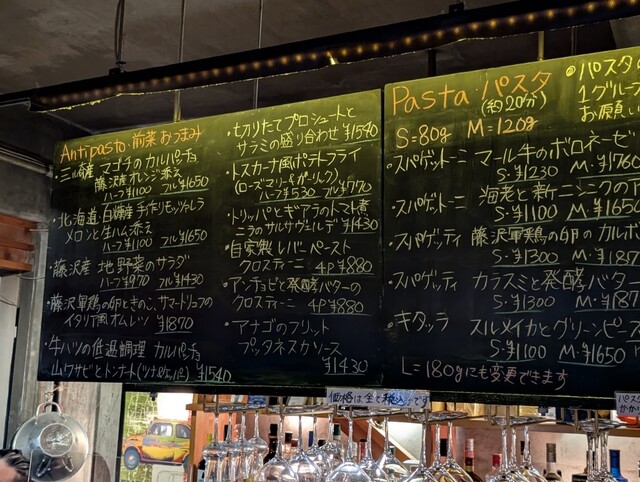 Antipasto 前菜 おつまみ
・三崎産 マゴチのカルパッチョ
藤沢産オレンジ添え
ハーフ¥1100 フル¥1650
・北海道 白糠産 手作りモッツァレラ
メロンと生ハム添え
ハーフ¥1100 フル¥1650
・藤沢産 地野菜のサラダ
ハーフ¥970 フル¥1430
・藤沢軍鶏の卵ときのこ、サマートリュフの
イタリア風オムレツ ¥1870
・牛ハツの低温調理 カルパッチョ
山ワサビとトンナート(ツナ) ¥1540
・切りたてプロシュートと
サラミの盛り合わせ ¥1540
・トスカーナ風ポテトフライ
(ローズマリー&ガーリック)
ハーフ¥530 フル¥770
・トリッパとギアラのトマト煮
ニラのサルサヴェルデ ¥1430
・自家製レバーペースト
クロスティーニ 4P¥880
・アンチョビと発酵バターの
クロスティーニ 4P¥880
・アナゴのフリット
プッタネスカソース
¥1430
Pasta・パスタ
(約20分)
S=80g M=120g
・スパゲットーニ マール牛のボロネーゼ
S:¥1230 M:¥1760
・スパゲットーニ 海老と新ニンニクの
S:¥1100 M:¥1650
・スパゲッティ 藤沢軍鶏の卵のカルボ
S:¥1300 M:¥187
・スパゲッティ カラスミと発酵バター
S:¥1300 M:¥187
・キタッラ スルメイカとグリーンピー
S:¥1100 M:¥1650
L=180gにも変更できます
・パスタの
1グループ
お願い
価格は全て税込です
パス
かか